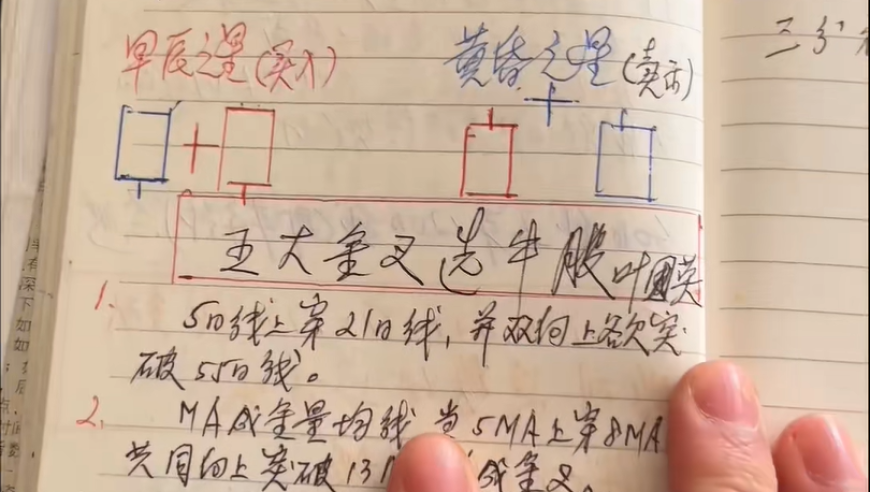 早辰之星(买入)
黄昏之星(卖出)
三分
五大金叉选牛股叶国英
1.
5日线上穿21日线,并双向上多次突
破55日线。
2.
MA成金量均线 当5MA上穿8MA
共同向上突破13 成金叉。